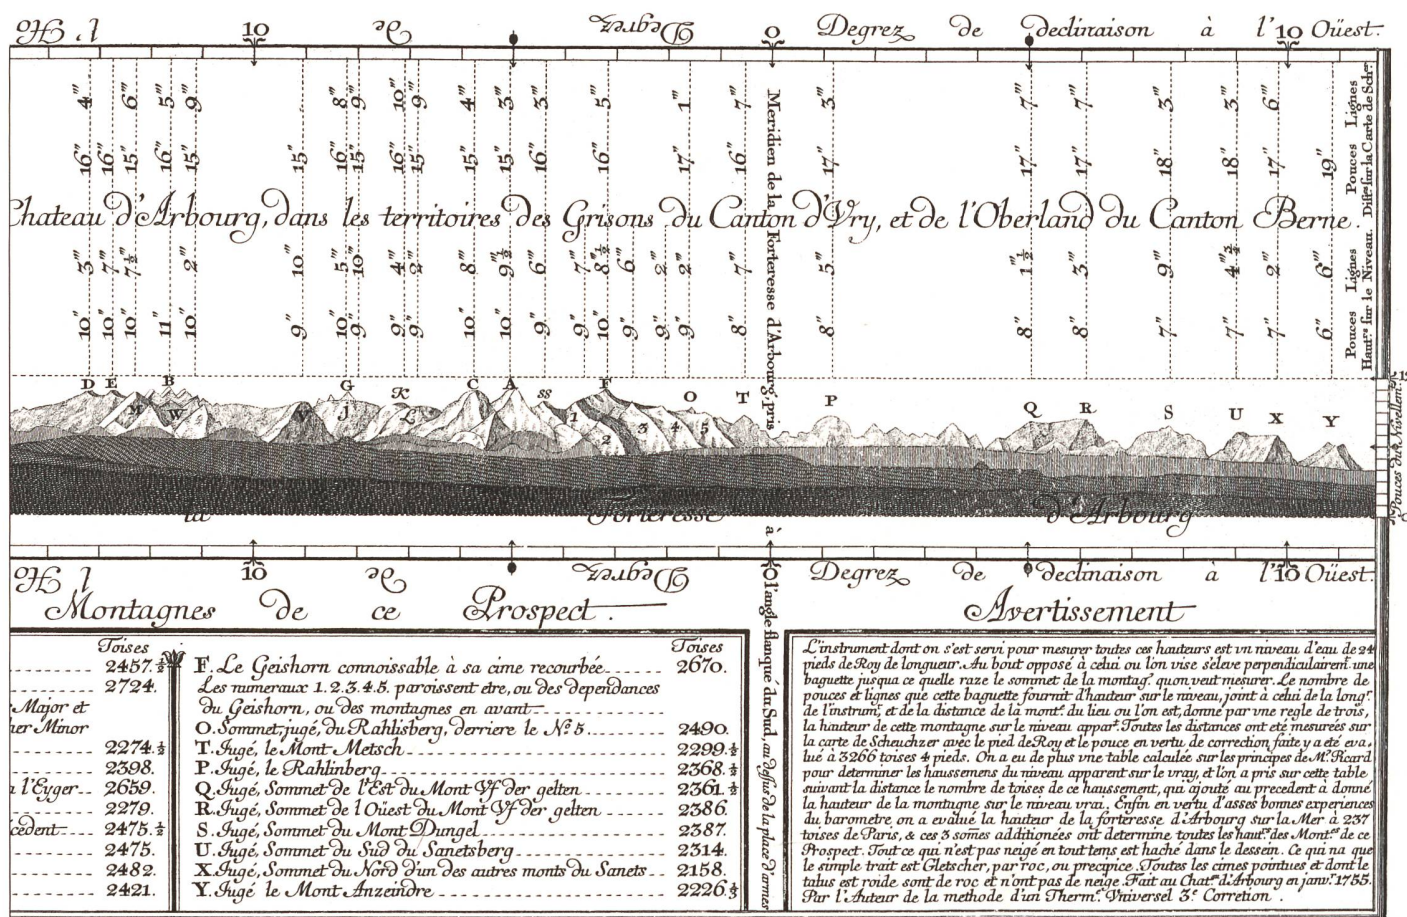 l' Ho 10 de Degrez 0 Degrez de declinaison à l' 10 Oüest.
4''' 6''' 5''' 9''' 8''' 9''' 10''' 9''' 4''' 3''' 3''' 5''' 1''' 7''' 3''' 7''' 7''' 3''' 3''' 6'''
16'' 16'' 15'' 16'' 15'' 15'' 16'' 15'' 16'' 15'' 15'' 15'' 16'' 16'' 17'' 16'' 17'' 17'' 17'' 18'' 18'' 17'' 19''
Pouces Lignes
Diffce sur la Carte de Scher
Chateau d'Arbourg, dans les territoires des Grisons du Canton d'Vry, et de l'Oberland du Canton Berne.
3''' 7''' 7½''' 2''' 10''' 5''' 10''' 4''' 2''' 8''' 9½''' 6''' 7''' 8½''' 6''' 2''' 2''' 7''' 5''' 1½''' 3''' 9''' 4¾''' 2''' 6'''
10'' 10'' 10'' 11'' 10'' 9'' 10'' 9'' 9'' 9'' 10'' 10'' 9'' 9'' 10'' 9'' 9'' 9'' 8'' 8'' 8'' 8'' 7'' 7'' 7'' 6''
Pouces Lignes
Hautrs sur le Niveau
Meridien de la Forteresse d'Arbourg, pris
D E B G K C A ss F O T P Q R S U X Y
M W V J L 1 2 3 4 5
Pouces du Nivellemt
la Forteresse d'Arbourg
à
l' Ho 10 de Degrez 0 Degrez de declinaison à l' 10 Oüest.
l'angle flanqué du Sud, au dessus de la place d'armes
Montagnes de ce Prospect.
Toises
2457.½
2724.
Major et
her Minor
2274.½
2398.
à l'Eyger 2659.
2279.
cédent 2475.½
2475.
2482.
2421.
Toises
F. Le Geishorn connoissable à sa cime recourbée 2670.
Les numeraux 1. 2. 3. 4. 5. paroissent etre, ou des dependances
du Geishorn, ou des montagnes en avant
O. Sommet, jugé, du Rahlisberg, derriere le No. 5 2490.
T. Jugé, le Mont Metsch 2299.½
P. Jugé, le Rahlinberg 2368.½
Q. Jugé, Sommet de l'Est du Mont Vf der gelten 2361.½
R. Jugé, Sommet de l'Oüest du Mont Vf der gelten 2386.
S. Jugé, Sommet du Mont Dungel 2387.
U. Jugé, Sommet du Sud du Sanetsberg 2314.
X. Jugé, Sommet du Nord d'un des autres monts du Sanets 2158.
Y. Jugé le Mont Anzeindre 2226.⅓
Avertissement
L'instrument dont on s'est servi pour mesurer toutes ces hauteurs est vn niveau d'eau de 24
pieds de Roy de longueur. Au bout opposé à celui ou lòn vise s'eleve perpendiculairemt une
baguette jusqua ce quelle raze le sommet de la montage quon veut mesurer. Le nombre de
pouces et lignes que cette baguette fournit d'hauteur sur le niveau, joint à celui de la longr
de l'instrumt, et de la distance de la montе du lieu ou l'on est, donne par vne regle de trois,
la hauteur de cette montagne sur le niveau appart. Toutes les distances ont eté mesurées sur
la carte de Scheuchzer avec le pied de Roy et le pouce en vertu de correction faite y a eté eva-
lué à 3266 toises 4 pieds. On a eu de plus vne table calculée sur les principes de Mr. Picard
pour determiner les haussemens du niveau apparent sur le vray, et lòn a pris sur cette table
suivant la distance le nombre de toises de ce haussement, qui ajouté au precedent à donné
la hauteur de la montagne sur le niveau vrai, Enfin en vertu d'asses bonnes experiences
du barometre, on a evalué la hauteur de la forteresse d'Arbourg sur la Mer à 237
toises de Paris, & ces 3 som̃es additionées ont determine toutes les hautrs des Montes de ce
Prospect. Tout ce qui n'est pas neigé en tout tems est haché dans le dessein. Ce qui na que
le simple trait est Gletscher, par roc, ou precipice. Toutes les cimes pointues et dont le
talus est roide sont de roc et n'ont pas de neige. Fait au Chatau d'Arbourg en janvr. 1755.
Par l'Auteur de la methode d'un Thermre Vniversel 3e Corretion.